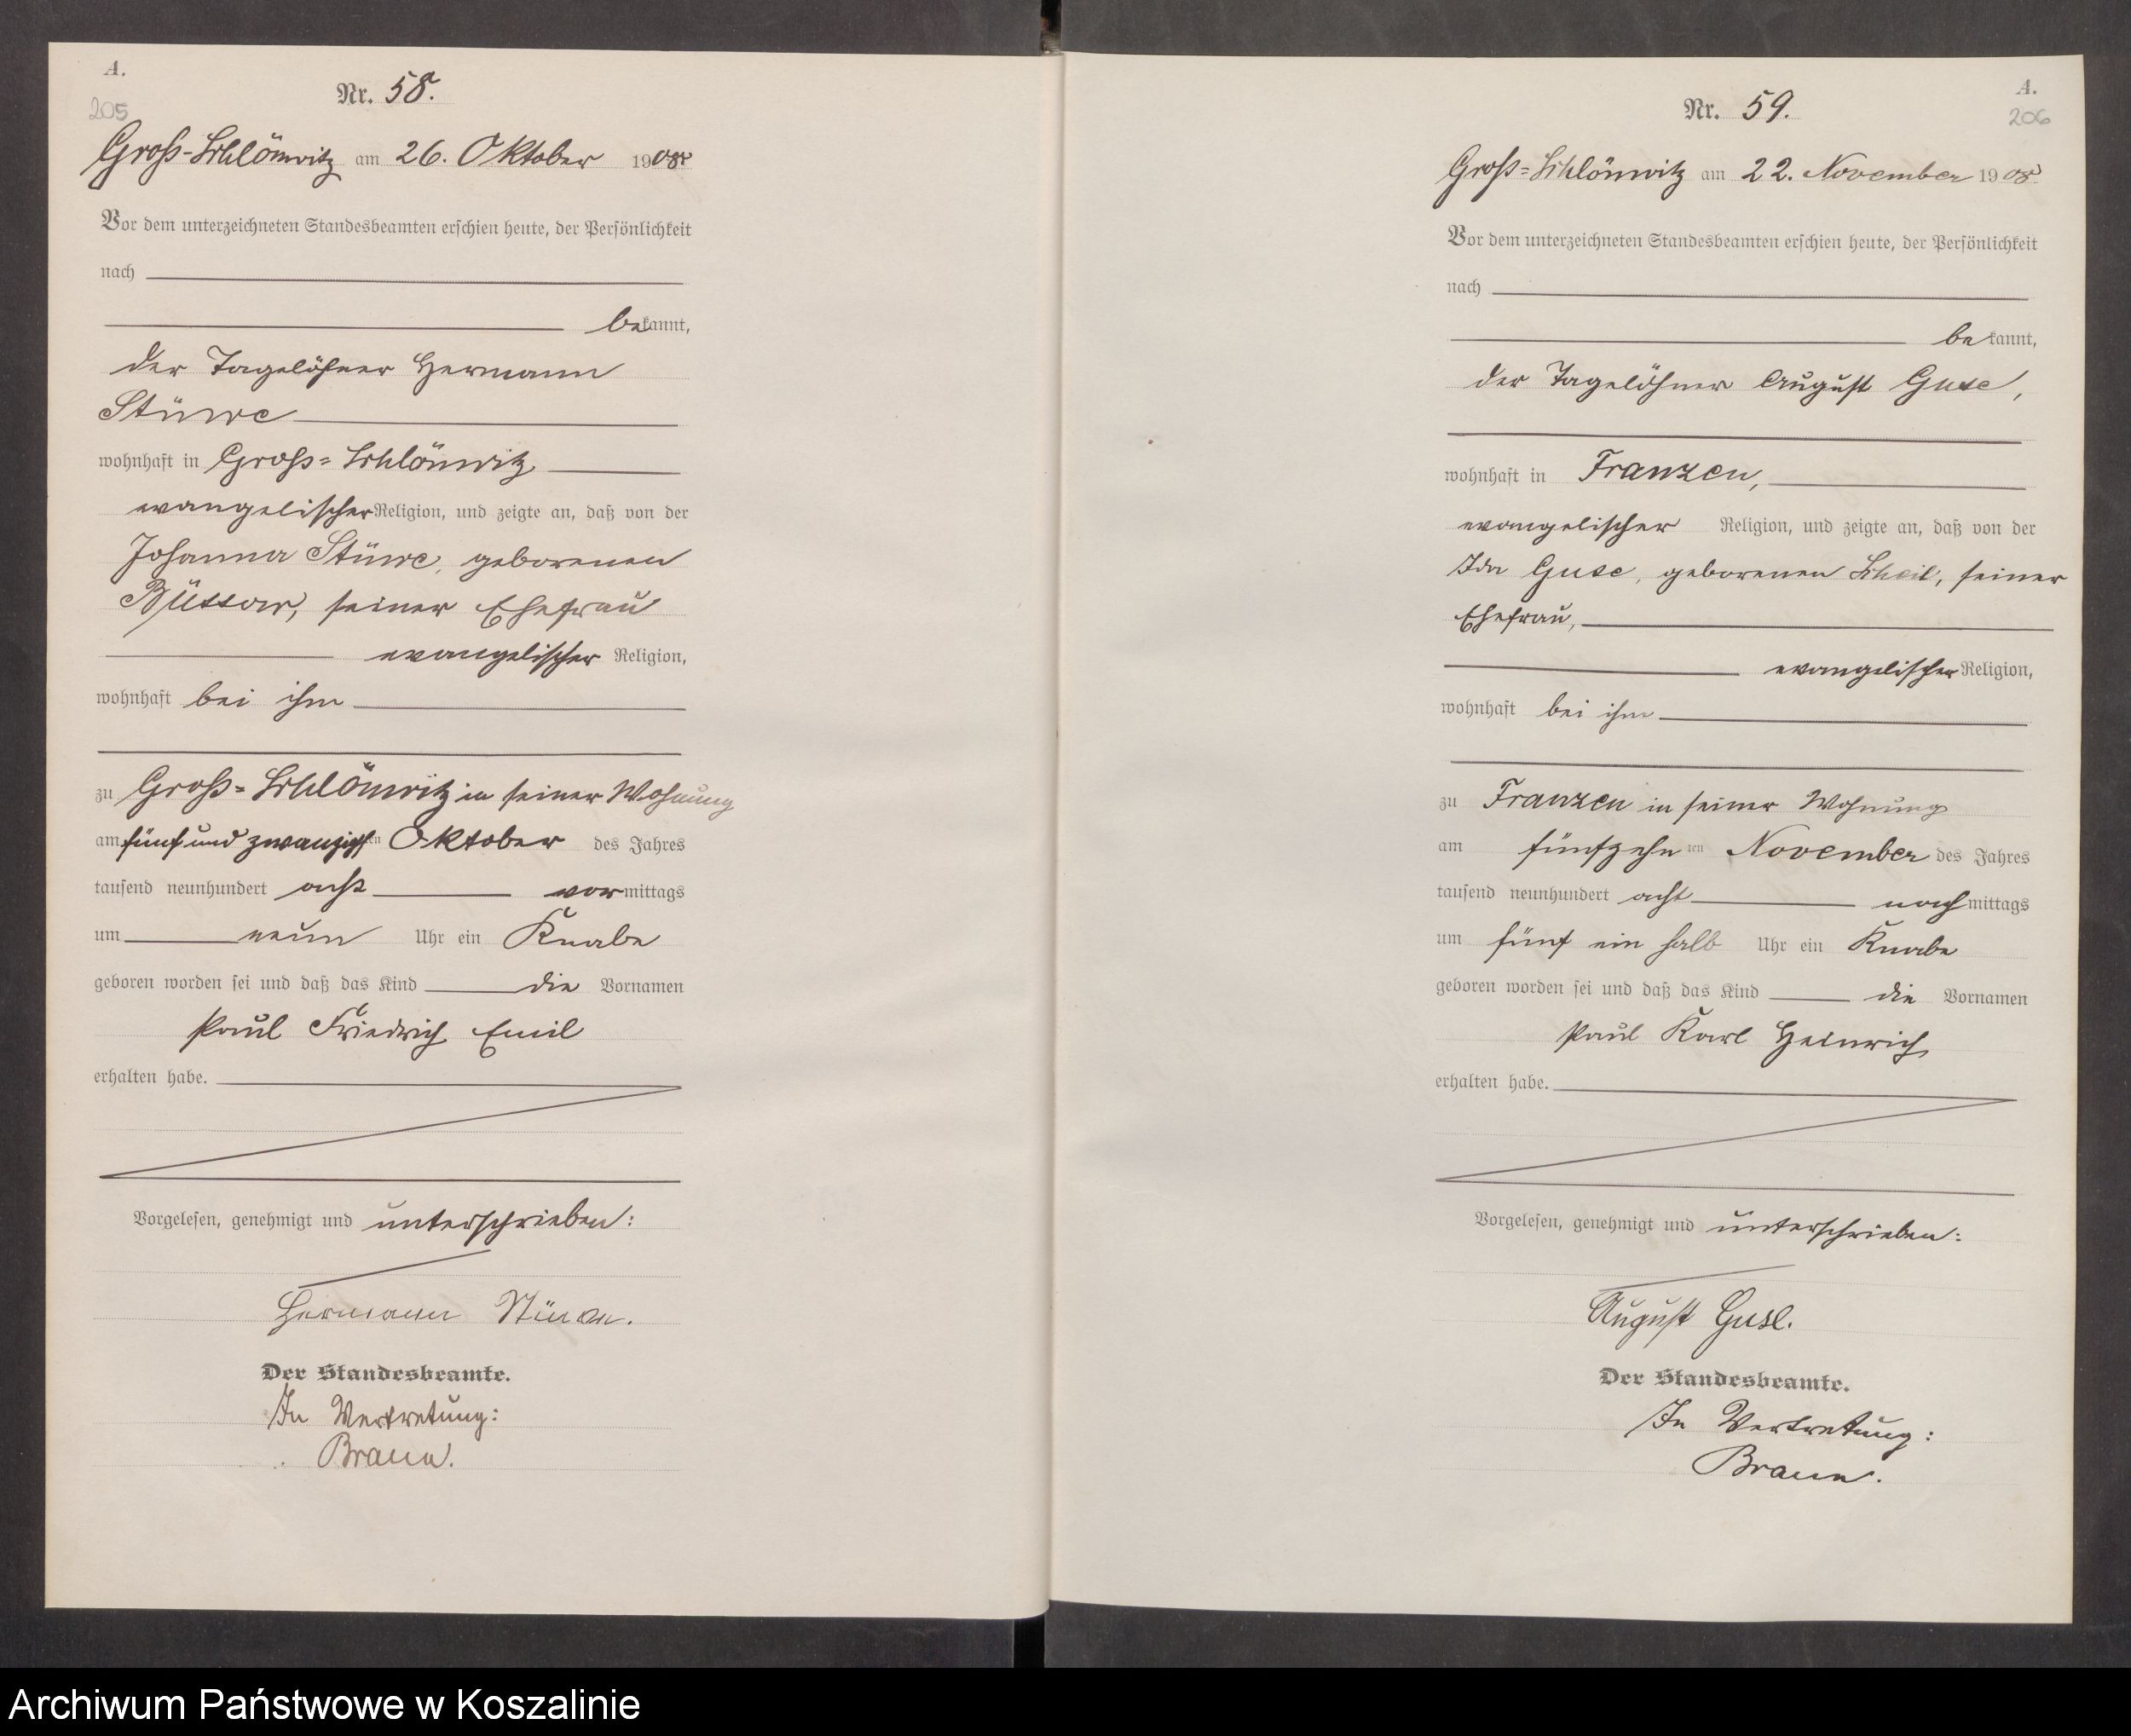 A.
205
Nr. 58.
Groß-Schlönwitz am 26. Oktober 1908
Vor dem unterzeichneten Standesbeamten erschien heute, der Persönlichkeit
nach
bekannt,
der Tagelöhner Hermann
Stüwe
wohnhaft in Groß-Schlönwitz
evangelischer Religion, und zeigte an, daß von der
Johanna Stüwe, geborenen
Büttow, seiner Ehefrau
evangelischer Religion,
wohnhaft bei ihm
zu Groß-Schlönwitz in seiner Wohnung
am fünfundzwanzigsten Oktober des Jahres
tausend neunhundert acht vormittags
um neun Uhr ein Knabe
geboren worden sei und daß das Kind die Vornamen
Paul Friedrich Emil
erhalten habe.
Vorgelesen, genehmigt und unterschrieben:
Hermann Stüwe.
Der Standesbeamte.
In Vertretung:
Braun.
A.
206
Nr. 59.
Groß-Schlönwitz am 22. November 1908
Vor dem unterzeichneten Standesbeamten erschien heute, der Persönlichkeit
nach
bekannt,
der Tagelöhner August Guse,
wohnhaft in Franzen,
evangelischer Religion, und zeigte an, daß von der
Ida Guse, geborenen Scheil, seiner
Ehefrau,
evangelischer Religion,
wohnhaft bei ihm
zu Franzen in seiner Wohnung
am fünfzehnten November des Jahres
tausend neunhundert acht nachmittags
um fünf ein halb Uhr ein Knabe
geboren worden sei und daß das Kind die Vornamen
Paul Karl Heinrich
erhalten habe.
Vorgelesen, genehmigt und unterschrieben:
August Guse.
Der Standesbeamte.
In Vertretung:
Braun.
Archiwum Państwowe w Koszalinie